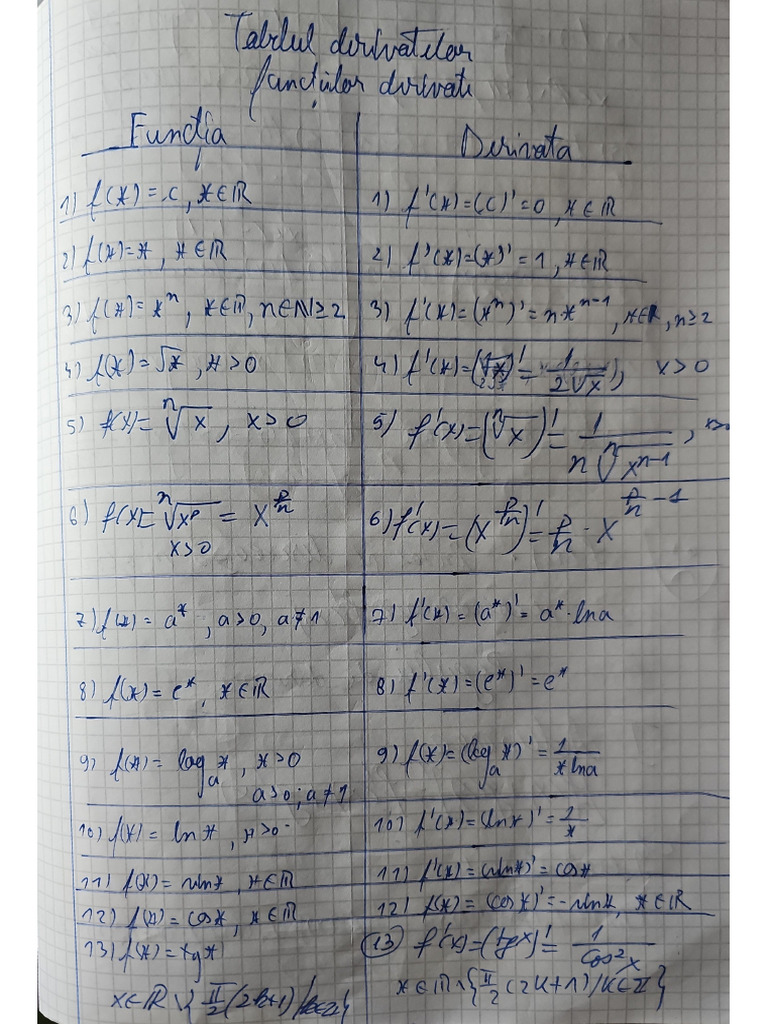 Tabelul derivatelor
funcțiilor derivate
Funcția | Derivata
1) f(x) = c, x∈ℝ | 1) f'(x)=(c)'=0, x∈ℝ
2) f(x)=x, x∈ℝ | 2) f'(x)=(x)'=1, x∈ℝ
3) f(x)=xⁿ, x∈ℝ, n∈ℕ≥2 | 3) f'(x)=(xⁿ)'=n·xⁿ⁻¹, x∈ℝ, n≥2
4) f(x)=√x, x>0 | 4) f'(x)=(√x)'=1/(2√x), x>0
5) f(x)=ⁿ√x, x>0 | 5) f'(x)=(ⁿ√x)'=1/(n ⁿ√(xⁿ⁻¹)), x>0
6) f(x)=ⁿ√(x^p) = x^(p/n) | 6) f'(x)=(x^(p/n))'=p/n · x^(p/n - 1)
x>0
7) f(x)=a^x, a>0, a≠1 | 7) f'(x)=(a^x)'=a^x·lna
8) f(x)=e^x, x∈ℝ | 8) f'(x)=(e^x)'=e^x
9) f(x)=log_a x, x>0 | 9) f(x)=(log_a x)'=1/(x lna)
a>0; a≠1
10) f(x)=lnx, x>0 | 10) f'(x)=(lnx)'=1/x
11) f(x)=sinx, x∈ℝ | 11) f'(x)=(sinx)'=cosx
12) f(x)=cosx, x∈ℝ | 12) f(x)=(cosx)'=-sinx, x∈ℝ
13) f(x)=tgx | 13) f'(x)=(tgx)'=1/cos²x
x∈ℝ\{π/2(2k+1)/k∈ℤ} | x∈ℝ\{π/2(2k+1)/k∈ℤ}